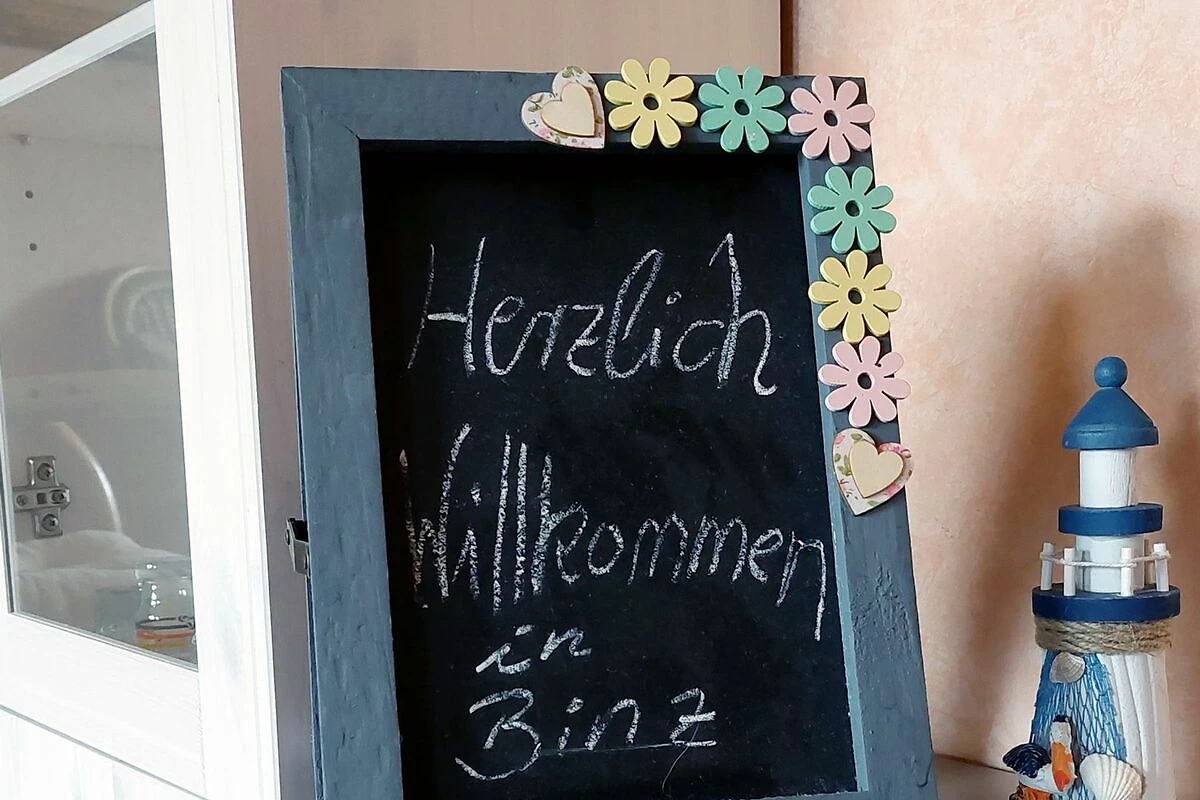 Herzlich
Willkommen
in
Binz